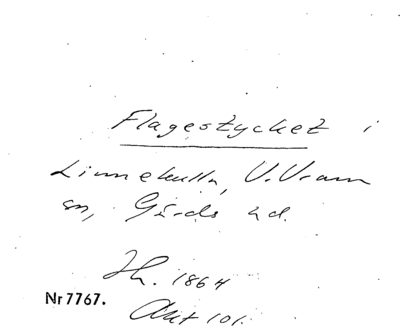 Flagestycket i
Linnekulla, V. Vram
sn, Gärds hd.
Jh. 1864
Nr 7767.
Akt 101.